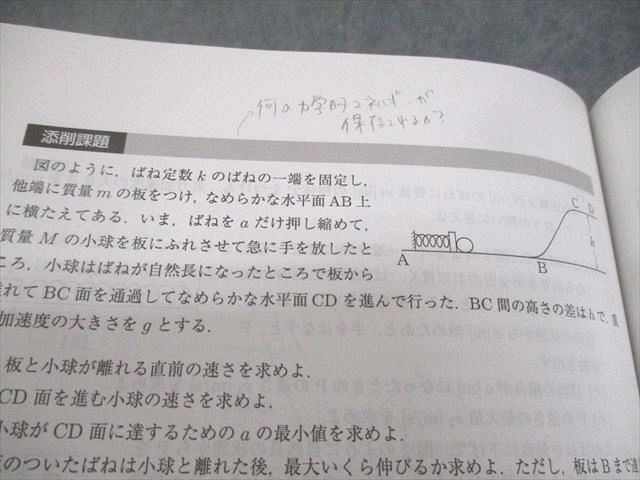 何の力学的エネルギーが
保存されるか?
添削課題
図のように，ばね定数 k のばねの一端を固定し，
他端に質量 m の板をつけ，なめらかな水平面 AB 上
に横たえてある．いま，ばねを a だけ押し縮めて，
質量 M の小球を板にふれさせて急に手を放したと
ころ，小球はばねが自然長になったところで板から
れて BC 面を通過してなめらかな水平面 CD を進んで行った．BC 間の高さの差は h で，重
加速度の大きさを g とする．
C D
h
A
B
板と小球が離れる直前の速さを求めよ．
CD 面を進む小球の速さを求めよ．
小球が CD 面に達するための a の最小値を求めよ．
のついたばねは小球と離れた後，最大いくら伸びるか求めよ．ただし，板は B まで